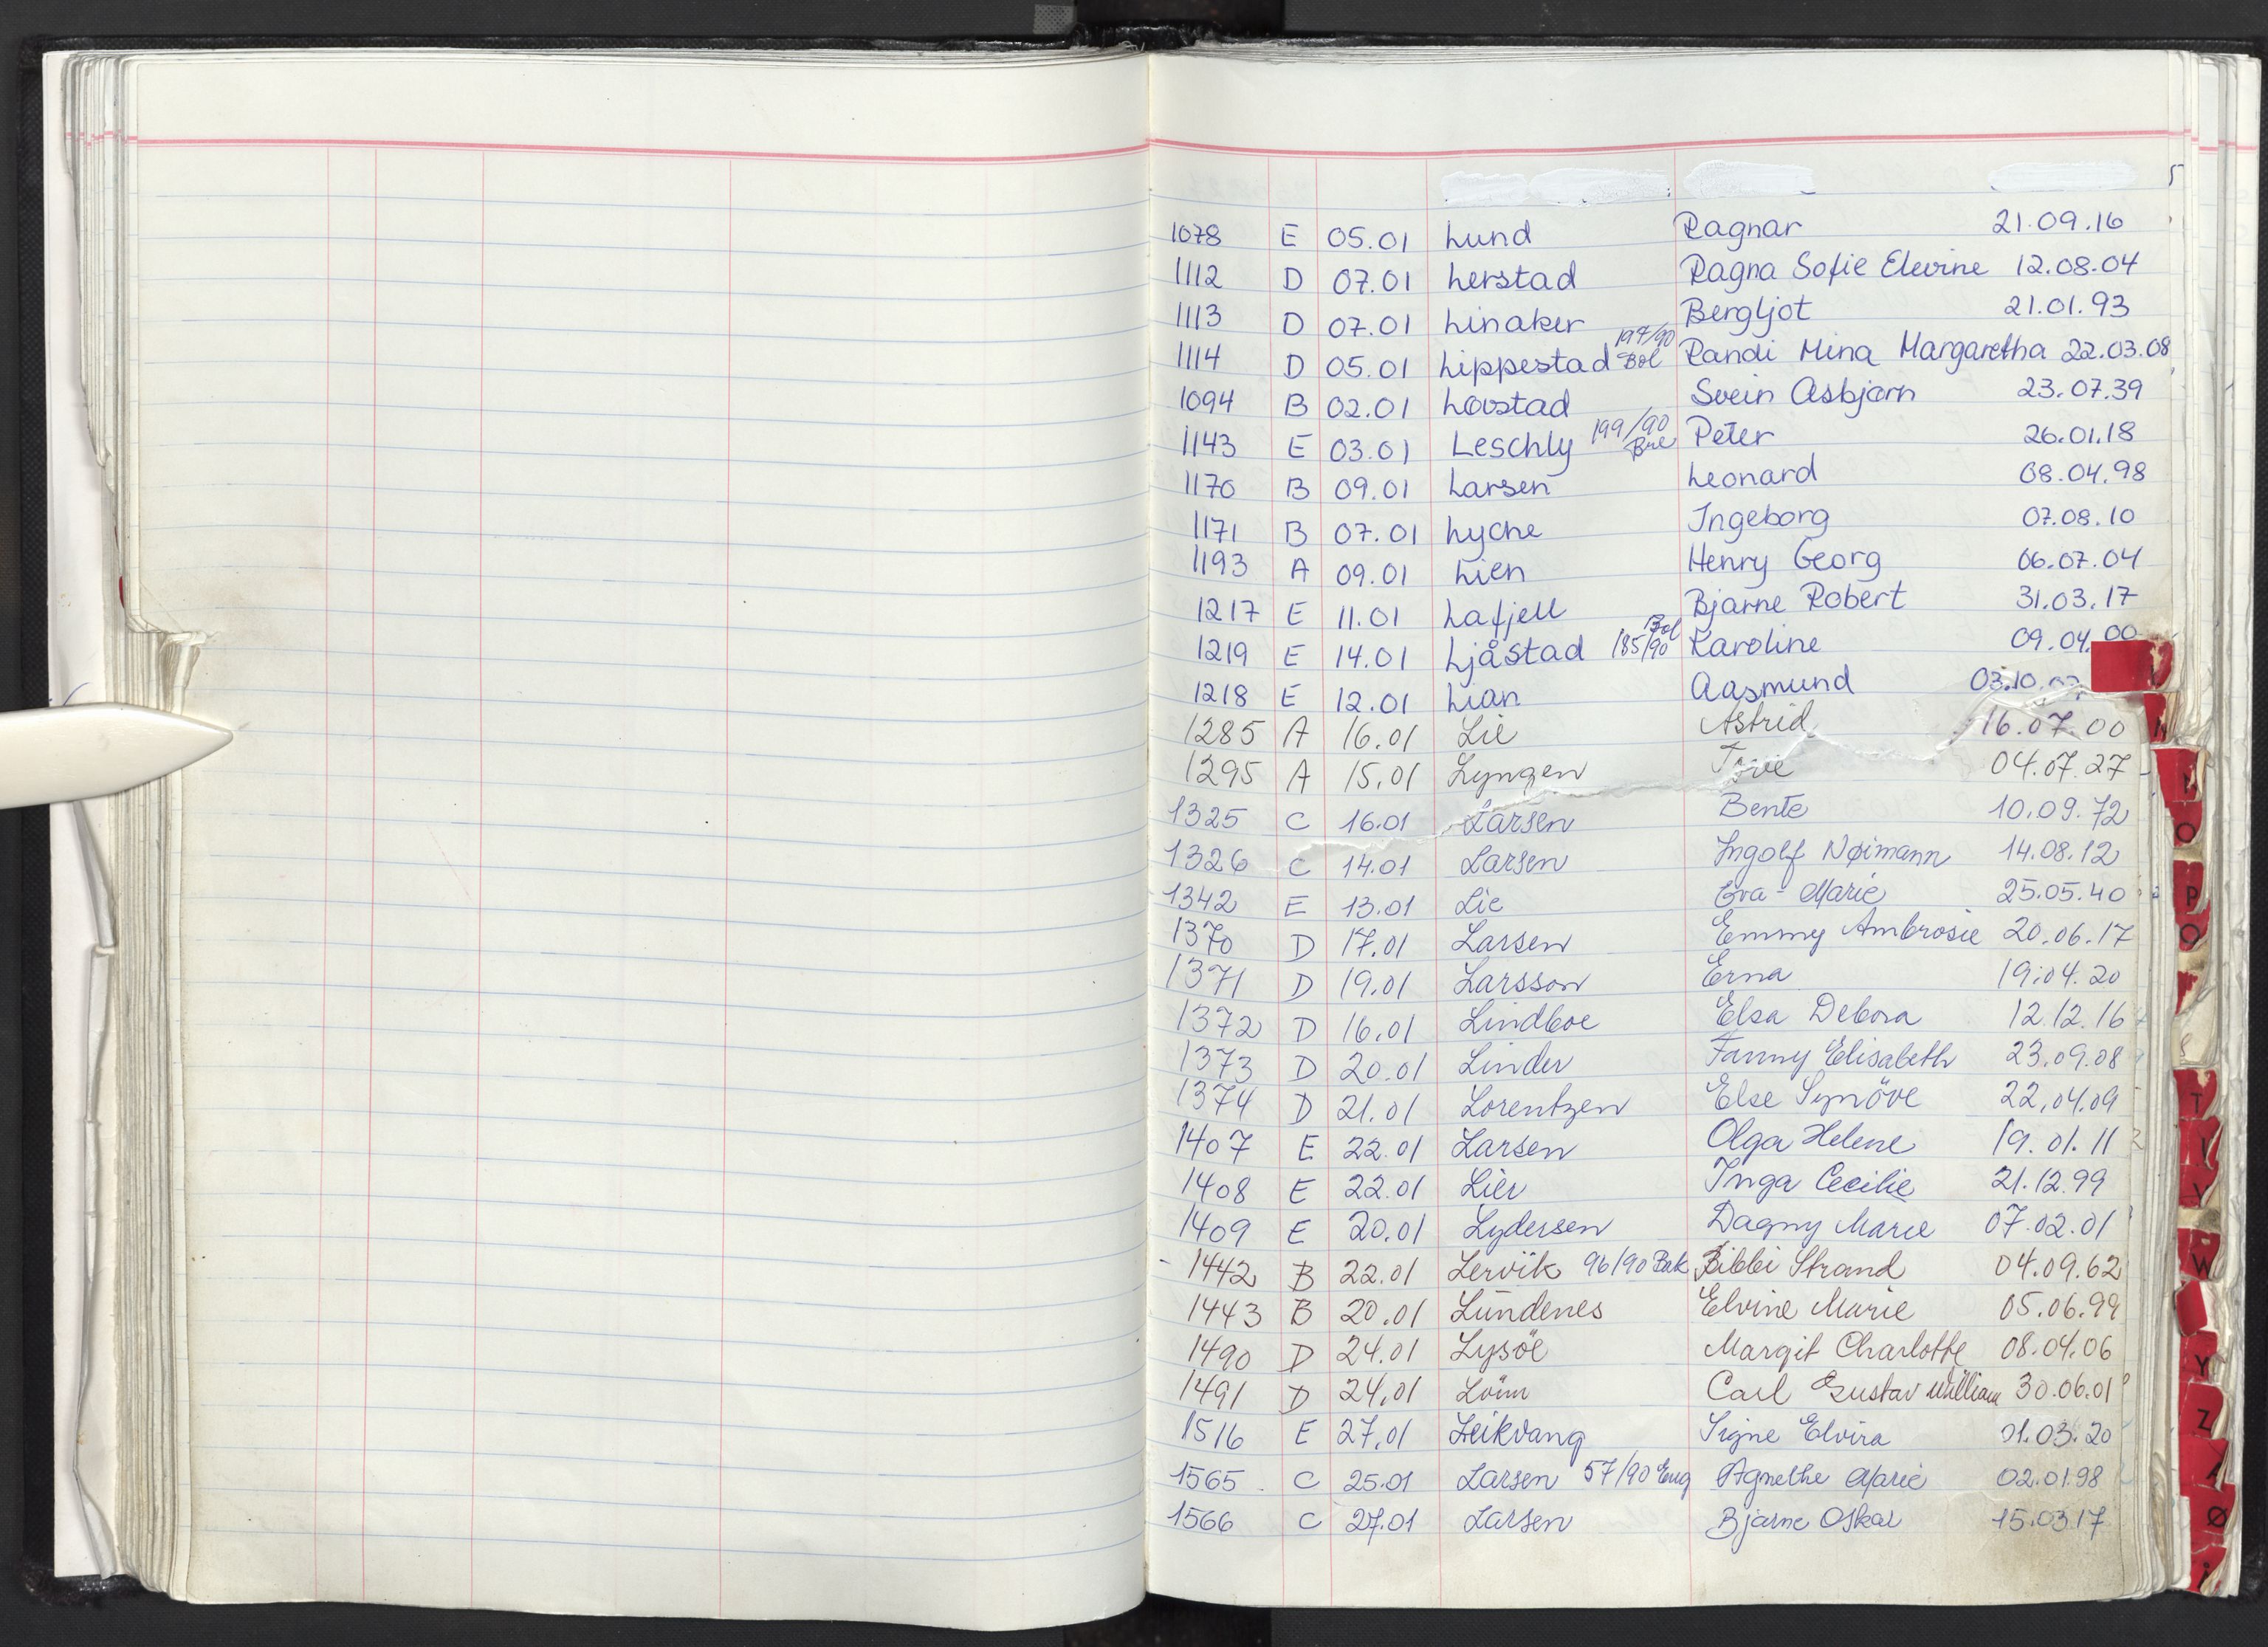 1078 E 05.01 Lund Ragnar 21.09.16
1112 D 07.01 Lerstad Ragna Sofie Elevine 12.08.04
1113 D 07.01 Linaker Bergljot 21.01.93
1114 D 05.01 Lippestad 194/90 Bol Randi Mina Margaretha 22.03.08
1094 B 02.01 Lovstad Svein Asbjørn 23.07.39
1143 E 03.01 Leschly 199/90 Peter 26.01.18
1170 B 09.01 Larsen Leonard 08.04.98
1171 B 07.01 Lyche Ingeborg 07.08.10
1193 A 09.01 Lien Henry Georg 06.07.04
1217 E 11.01 Lafjell Bjarne Robert 31.03.17
1219 E 14.01 Ljåstad 185/90 Bol Karoline 09.04.00
1218 E 12.01 Lian Aasmund 03.10.
1285 A 16.01 Lie Astrid 16.07.00
1295 A 15.01 Lyngen Tove 04.07.27
1325 C 16.01 Larsen Bente 10.09.72
1326 C 14.01 Larsen Ingolf Nøimann 14.08.12
1342 E 13.01 Lie Eva-Marie 25.05.40
1370 D 17.01 Larsen Emmy Ambrosie 20.06.17
1371 D 19.01 Larsson Erna 19.04.20
1372 D 16.01 Lindboe Elsa Debora 12.12.16
1373 D 20.01 Linder Fanny Elisabeth 23.09.08
1374 D 21.01 Lorentzen Else Synöve 22.04.09
1407 E 22.01 Larsen Olga Helene 19.01.11
1408 E 22.01 Lier Inga Cecilie 21.12.99
1409 E 20.01 Lydersen Dagny Marie 07.02.01
1442 B 22.01 Lervik 96/90 Bak Bibbi Strand 04.09.62
1443 B 20.01 Lundenes Elvine Marie 05.06.99
1490 D 24.01 Lysöe Margit Charlotte 08.04.06
1491 D 24.01 Carl Gustav William 30.06.01
1516 E 27.01 Leikvang Signe Elvira 01.03.20
1565 C 25.01 Larsen 57/90 Eug Agnethe Marie 02.01.98
1566 C 27.01 Larsen Bjarne Oskar 15.03.17
O
P
Q
T
W
Y
Z
Ø